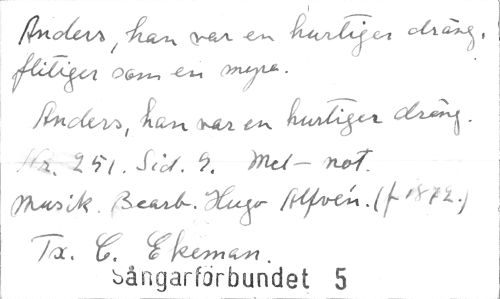 Anders, han var en hurtiger dräng,
flitiger som en myra.
Anders, han var en hurtiger dräng.
Nr. 251. Sid. 9. Mel - not.
Musik. Bearb. Hugo Alfvén. (f 1872.)
Tx. C. Ekeman.
Sångarförbundet 5